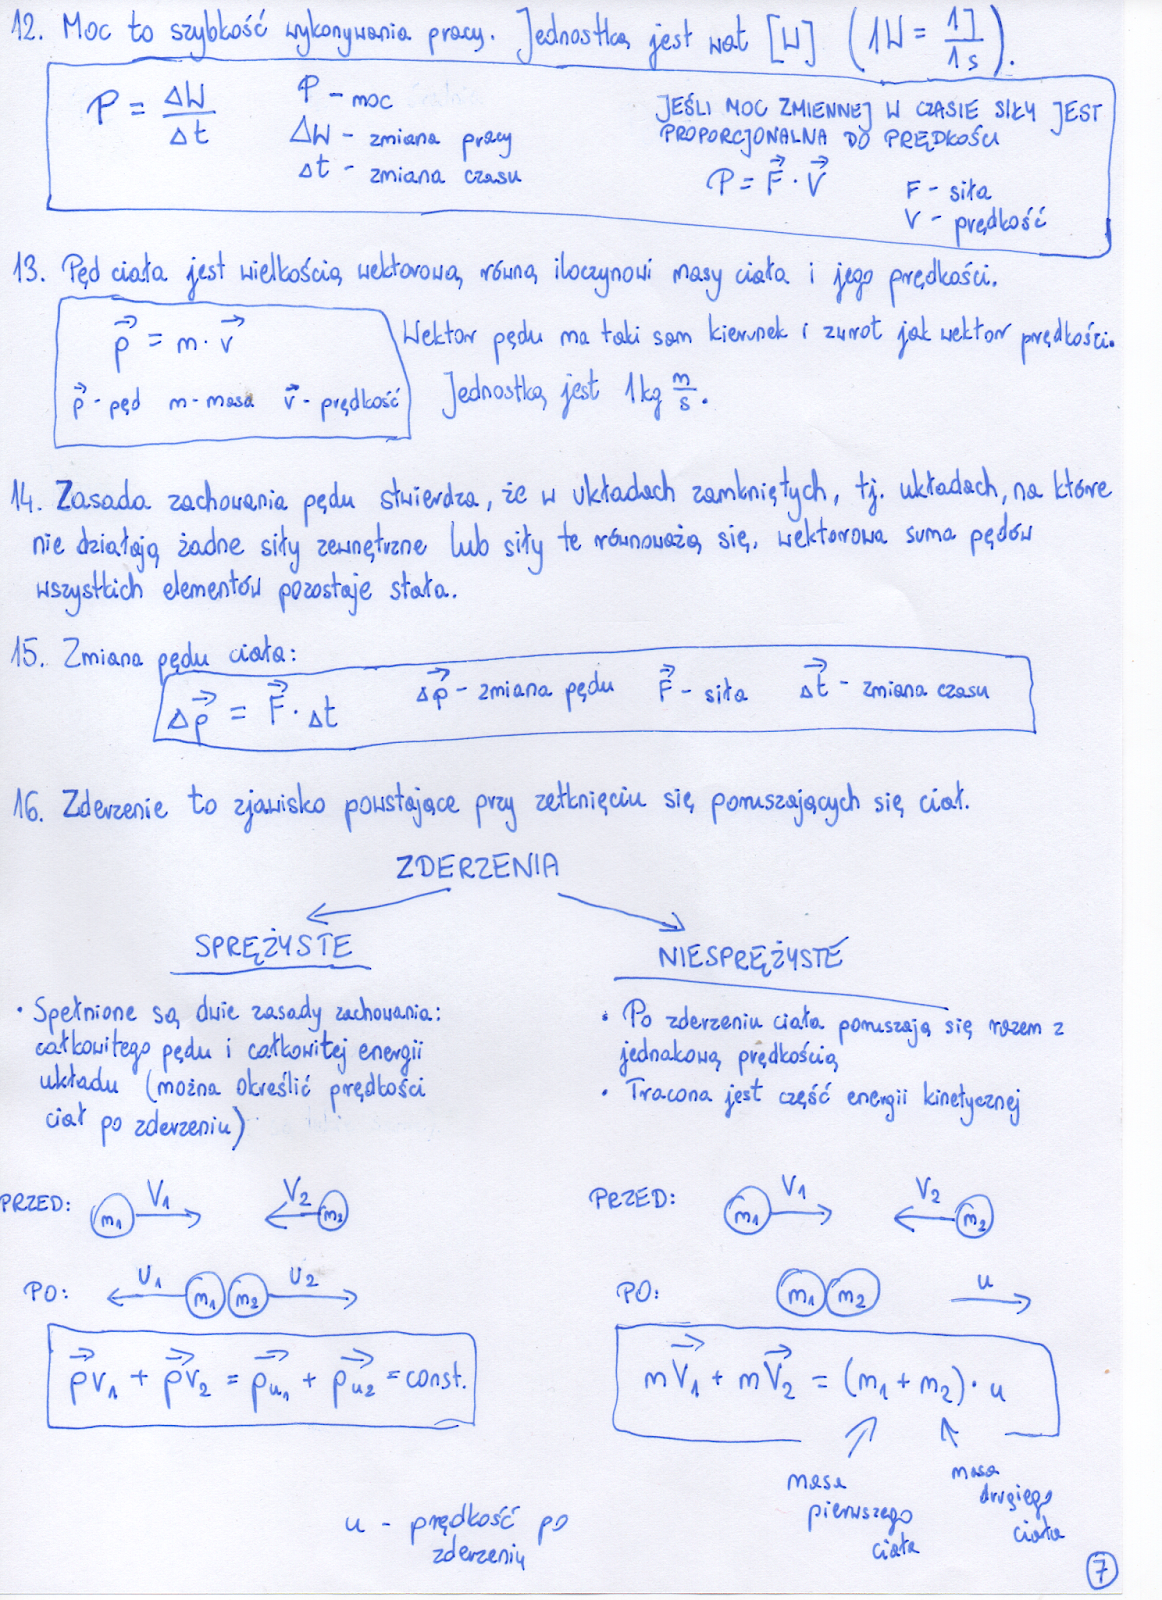 12. Moc to szybkość wykonywania pracy. Jednostką jest wat [W] (1W = 1J/1s).
P = ΔW/Δt
P - moc
ΔW - zmiana pracy
Δt - zmiana czasu
JEŚLI MOC ZMIENNEJ W CZASIE SIŁY JEST
PROPORCJONALNA DO PRĘDKOŚCI
P = F⃗ · V⃗
F - siła
V - prędkość
13. Pęd ciała jest wielkością wektorową równą iloczynowi masy ciała i jego prędkości.
p⃗ = m · v⃗
p⃗ - pęd m - masa v⃗ - prędkość
Wektor pędu ma taki sam kierunek i zwrot jak wektor prędkości.
Jednostką jest 1kg m/s.
14. Zasada zachowania pędu stwierdza, że w układach zamkniętych, tj. układach, na które
nie działają żadne siły zewnętrzne lub siły te równoważą się, wektorowa suma pędów
wszystkich elementów pozostaje stała.
15. Zmiana pędu ciała:
Δp⃗ = F⃗ · Δt
Δp⃗ - zmiana pędu F⃗ - siła Δt⃗ - zmiana czasu
16. Zderzenie to zjawisko powstające przy zetknięciu się poruszających się ciał.
ZDERZENIA
SPRĘŻYSTE
• Spełnione są dwie zasady zachowania:
całkowitego pędu i całkowitej energii
układu (można określić prędkości
ciał po zderzeniu)
PRZED: m₁ V₁ V₂ m₂
PO: U₁ m₁ m₂ U₂
p⃗v₁ + p⃗v₂ = p⃗u₁ + p⃗u₂ = const.
NIESPRĘŻYSTE
• Po zderzeniu ciała poruszają się razem z
jednakową prędkością
• Tracona jest część energii kinetycznej
PRZED: m₁ V₁ V₂ m₂
PO: m₁ m₂ u
mV⃗₁ + mV⃗₂ = (m₁ + m₂) · u
masa
pierwszego
ciała
masa
drugiego
ciała
u - prędkość po
zderzeniu
7